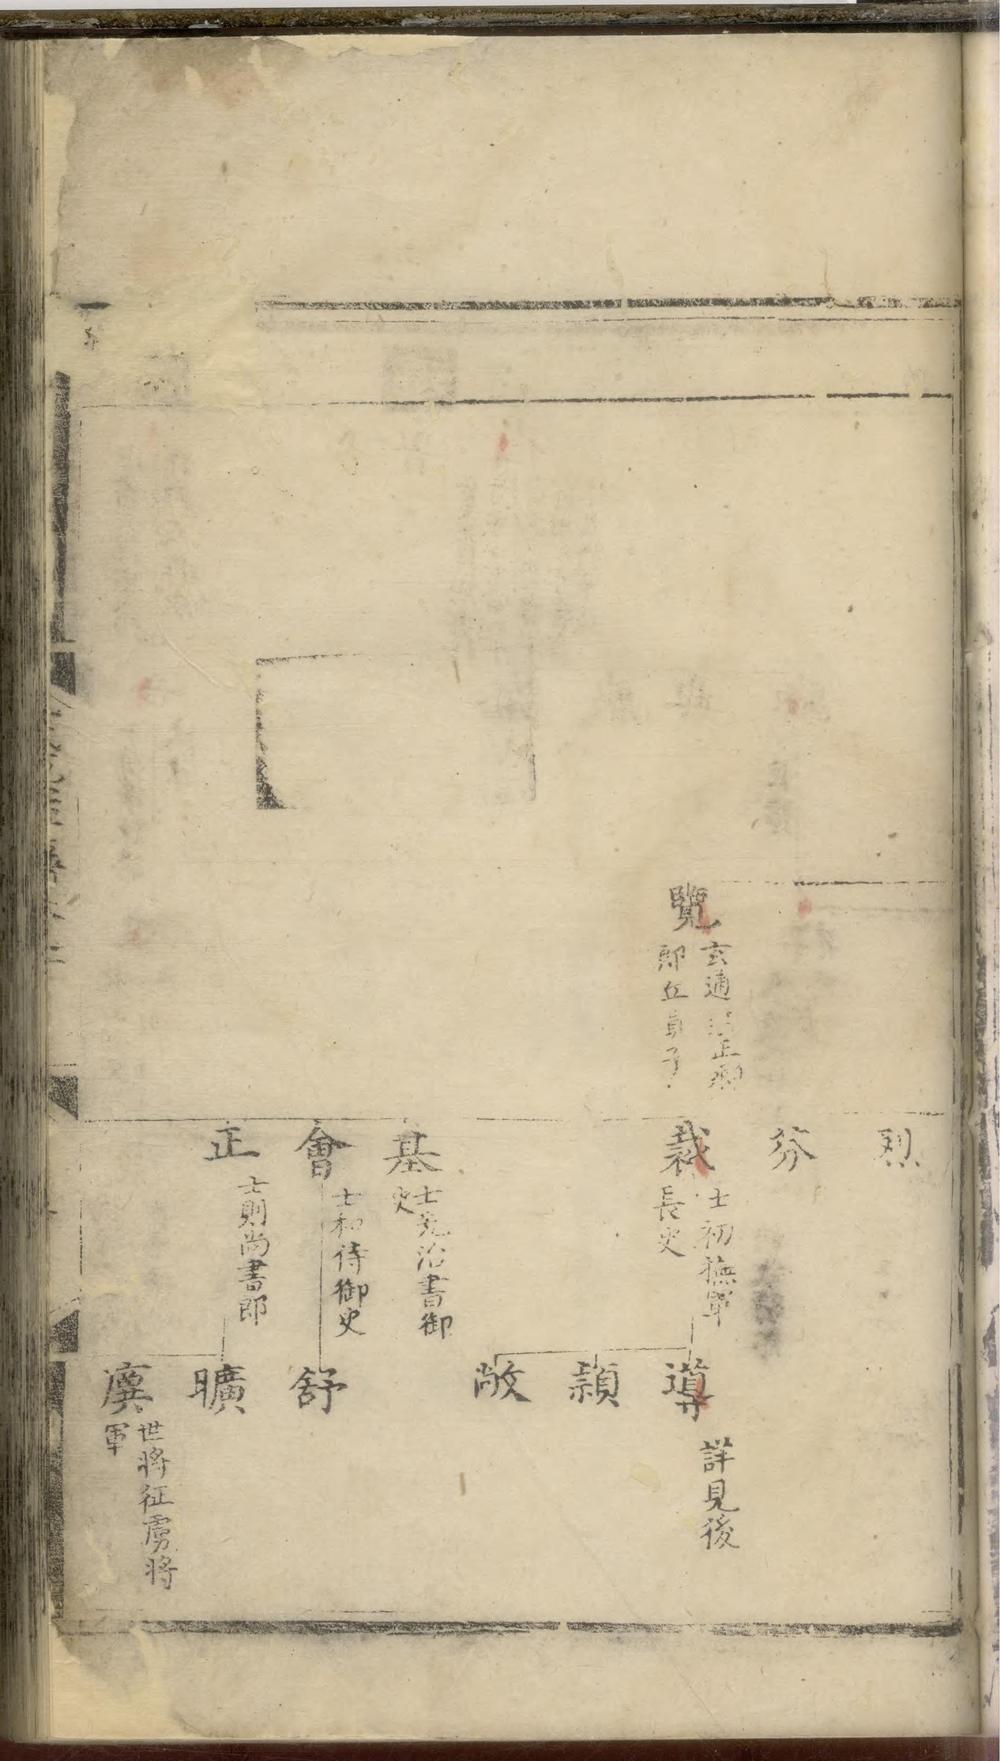 覽
玄通
正
郎丘貞子
烈
芬
裁
士初撫軍
長史
基
治書御
史
會
士和侍御史
正
士則尚書郎
導
詳見後
穎
敞
舒
曠
廙
世將征虜將
軍